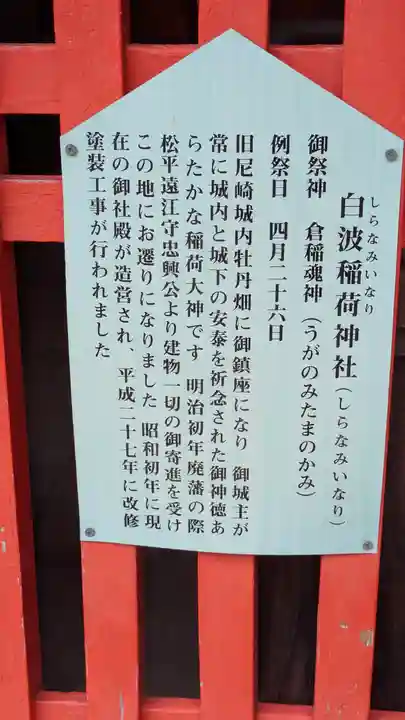 しらなみいなり
白波稲荷神社(しらなみいなり)
御祭神 倉稲魂神(うがのみたまのかみ)
例祭日 四月二十六日
旧尼崎城内牡丹畑に御鎮座になり 御城主が
常に城内と城下の安泰を祈念された御神徳あ
らたかな稲荷大神です 明治初年廃藩の際
松平遠江守忠興公より建物一切の御寄進を受け
この地にお遷りになりました 昭和初年に現
在の御社殿が造営され、平成二十七年に改修
塗装工事が行われました